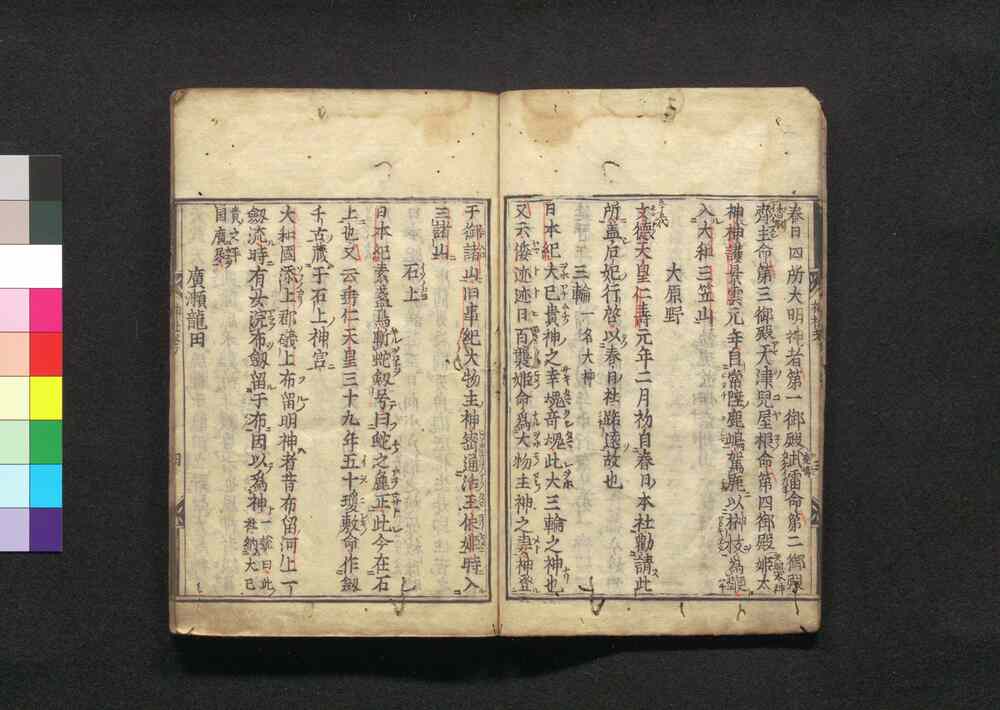 春日四所大明神者第一御殿武雷命第二御殿
齋主命第三御殿天津兒屋根命第四御殿姫太
神神護景雲元年自常陸鹿嶋駕鹿以榊枝爲
入大和三笠山
大原野
文德天皇仁壽元年二月初自春日本社勸請此
所蓋后妃行啓以春日社踈遠故也
三輪一名大神
日本紀大己貴神之幸魂奇魂此大三輪之神也
又云倭迹迹日百襲姫命爲大物主神之妻神登
于御諸山旧事紀大物主神密通活玉依姫時入
三諸山
石上
日本紀素盞烏斬蛇劔号曰蛇之麁正此今在石
上也又云垂仁天皇三十九年五十瓊敷命作劔
千古藏于石上神宮
大和國添上郡 上布留明神者昔布留河上一
劔流時有 布劔留于布因以爲神 一 曰此社納大己
貴之
國廣
廣瀬龍田